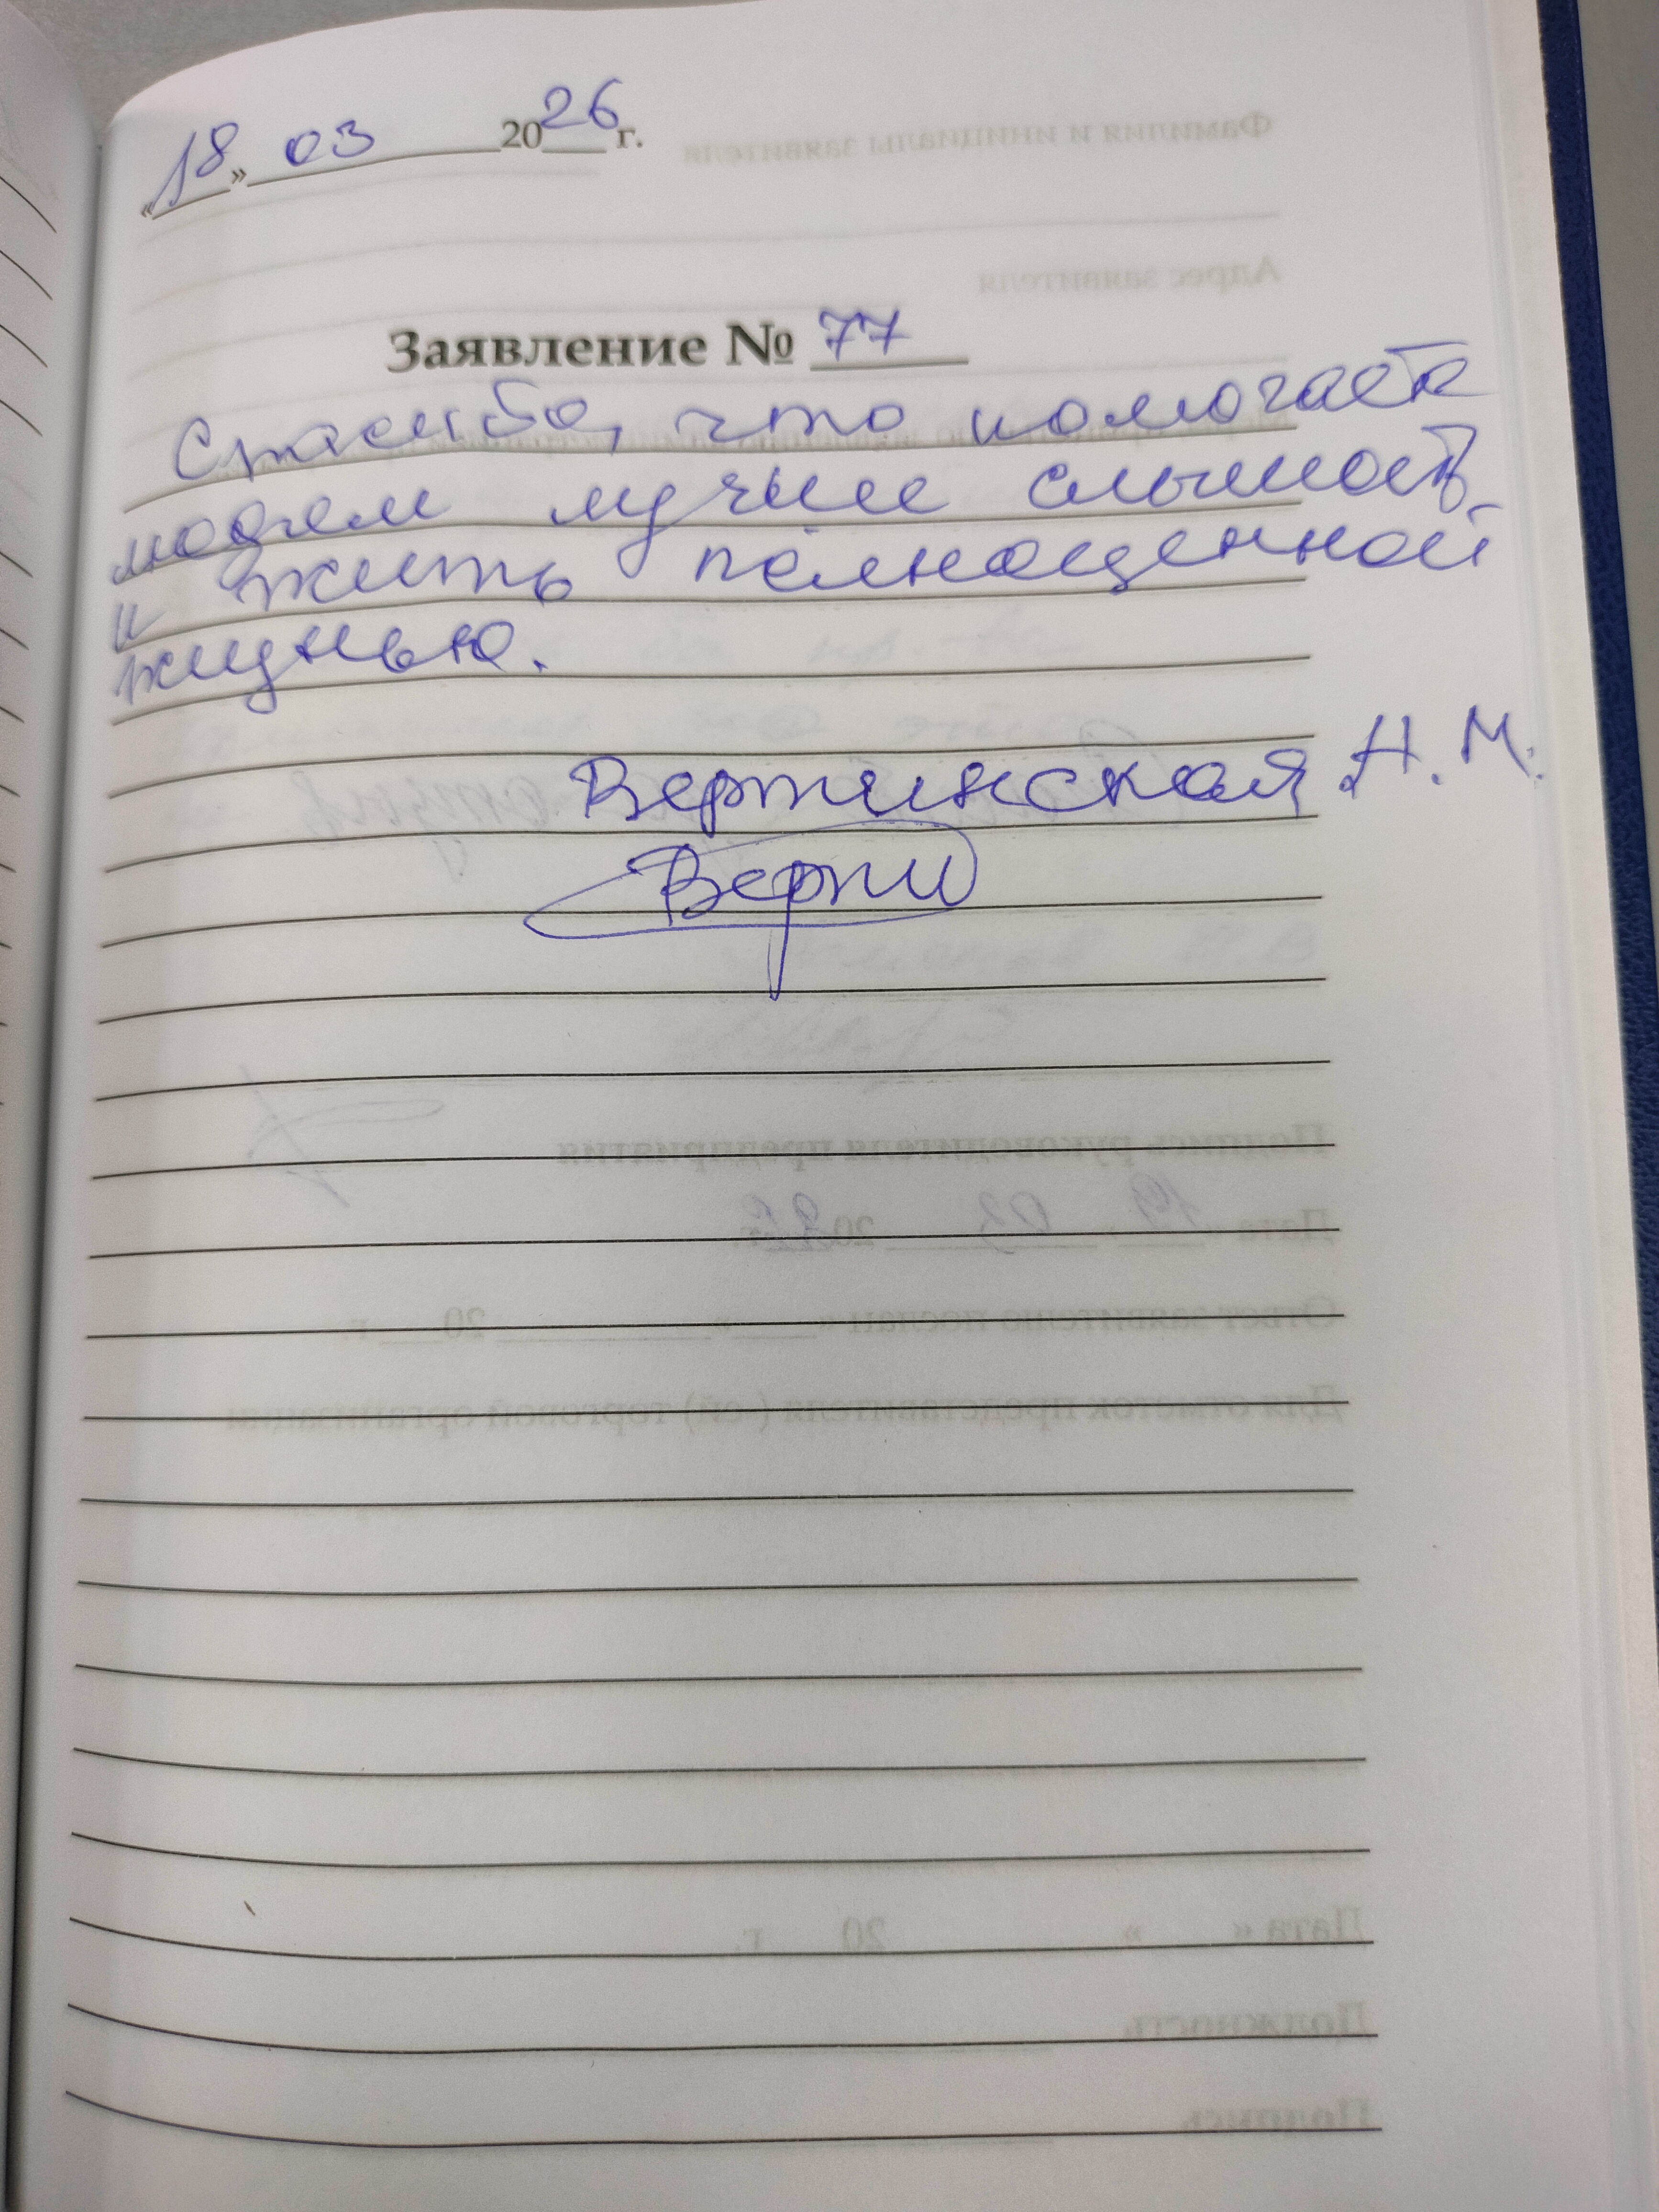 «18» 03 2026 г.
Заявление № 77
Спасибо, что помогаете
людям лучше слышать
и жить полноценной
жизнью.
Вертинская Н. М.
Верти